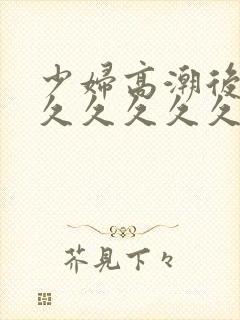 少婦高潮後
久久久久久
芥見下々